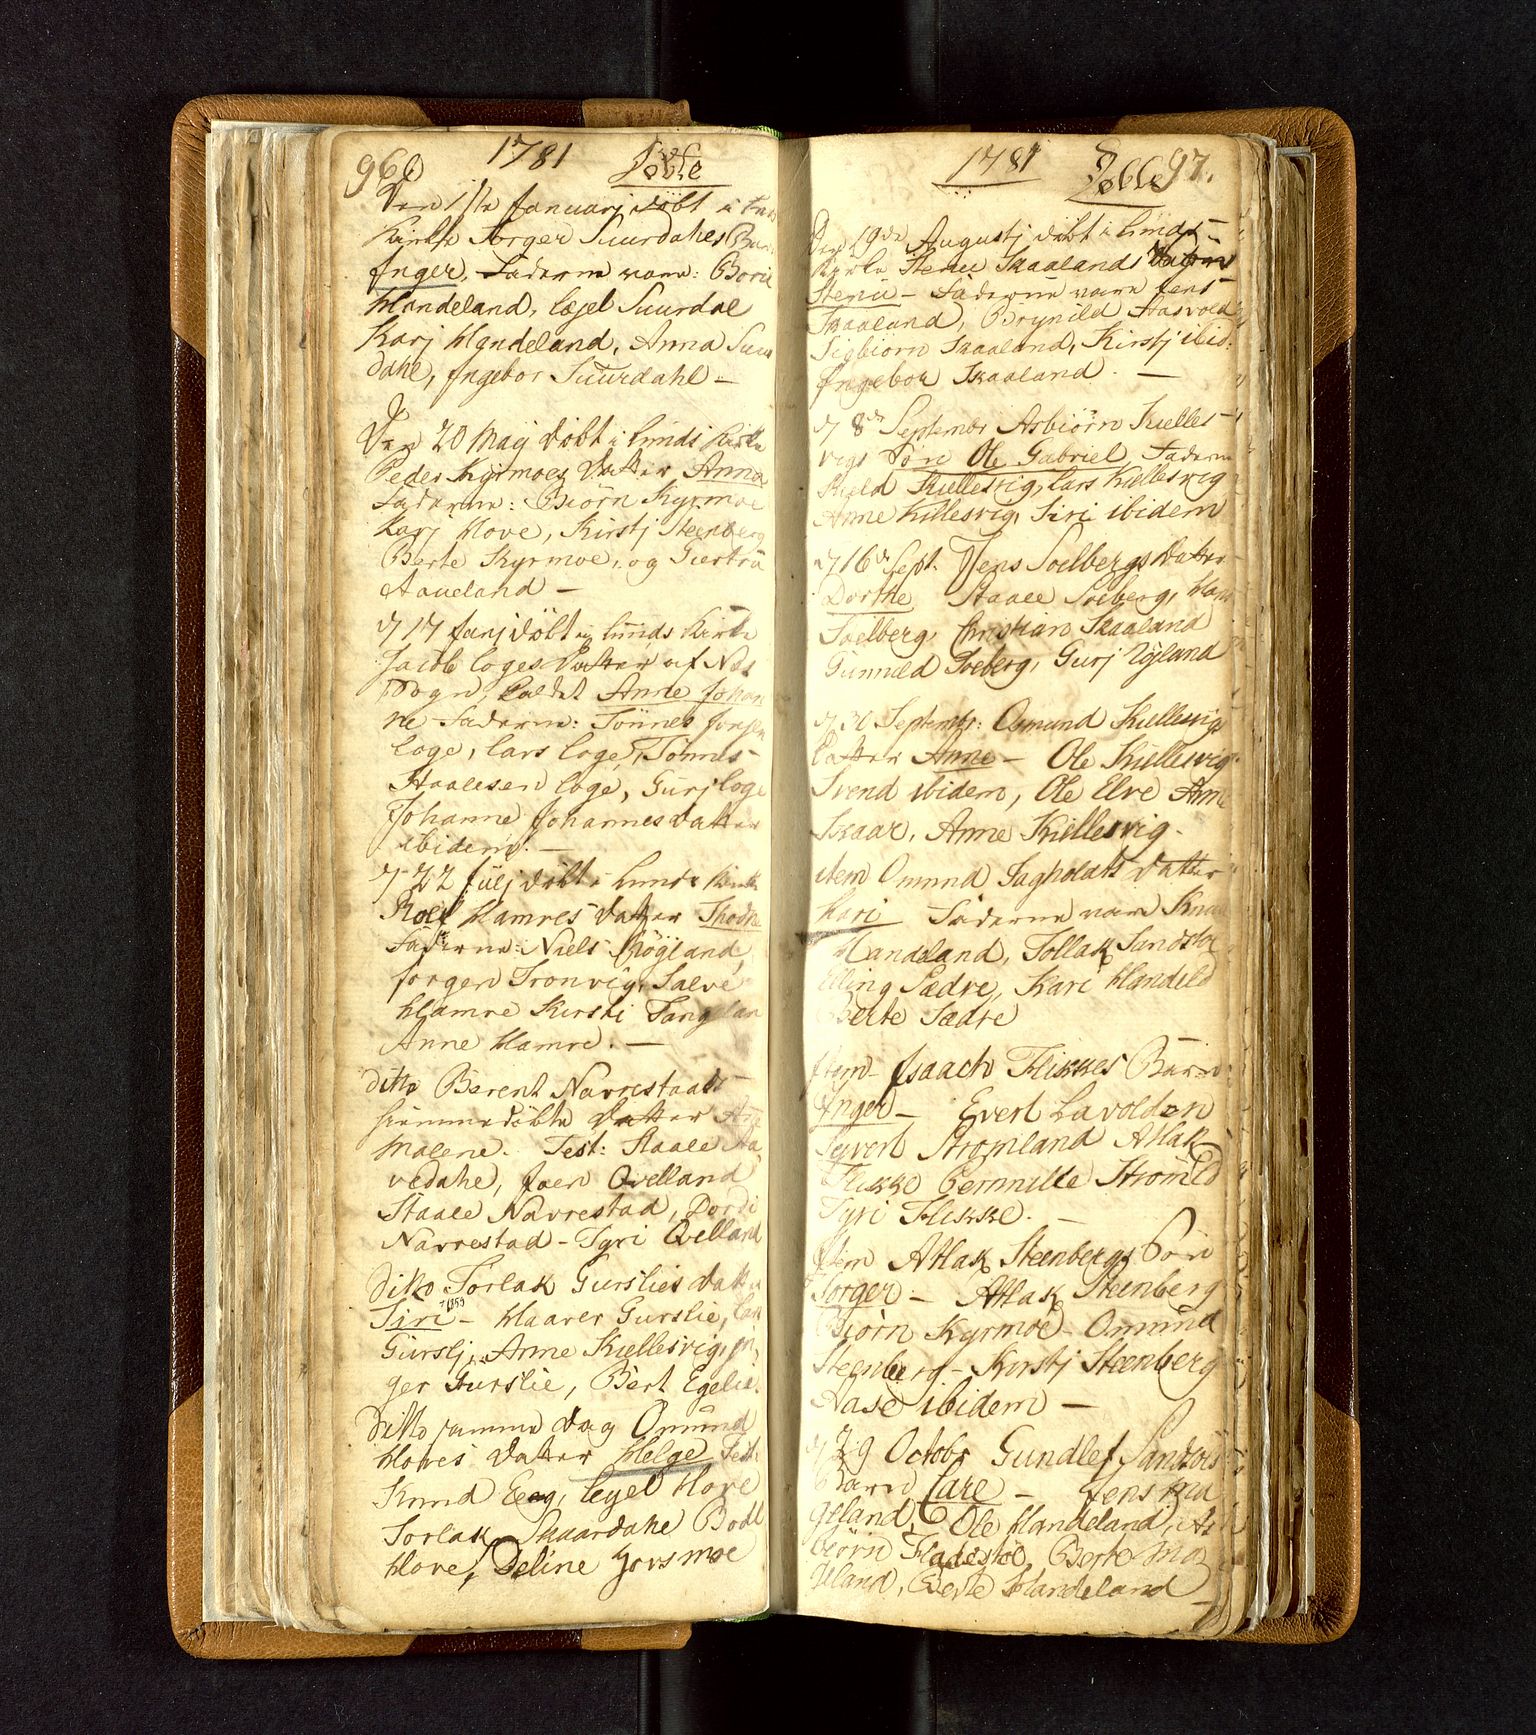 960 1781 Döbte
Den 1ste Januarj döbt i
Kirke Torger Suurdahls
Inger, Fadderne vare: Borie
Handeland, Egel Suurdal
Karj Handeland, Anna
dahl, Ingebor Suurdahl —
Den 20 Maij döbt i Lunds Kirke
Peder Kyrmoes datter Anna
Fadderne: Biörn Kyrmoe
Karj Hove, Kirstj Steenberg
Berte Kyrmoe, og Giertru
Aaveland —
d 17 Junj döbt i Lunds Kirke
Jacob Loges Datter af
Sogn, kaldet Anne Johan
ne Fadderne: Tönnes
Loge, Lars Loge, Tönnes
Staalesen Loge, Gurj Loge
Johanne Johannesdatter
ibidem. —
d 22 Julj döbt i Lunds Kirke
Roel Hamres datter
Fadderne: Niels Högland,
Jorgen Tronvig, Salve
Hamre Kirsti
Anne Hamre. —
ditto Berent Navrestads
hiemmedöbte datter
Malene. Test: Staale
vedahl, Joen Qvelland
Staale Navrestad, Dordi
Navrestad – Tyri Qvelland
ditto Torlak Gurslies datter
Siri – Haaver Gurslie,
Gurslj, Anne Kiellesvig,
ger Gurslie, Bert Egelie.
Ditto samme dag Omund
Hoves datter Helge
Knud Eeg, Egel Hove
Torlak Skaardahl Bodl
Hove, Deline Jorsmoe
1781 Döbte 97.
Den 19de Augustj döbt i Lunds
Kirke Stenei Skaalands datter
Stenie – Fadderne vare Jens
Skaaland, Brynild
Sigbiorn Skaaland, Kirstj ibid:
Ingebor Skaaland. —
d 8de Septembr Asbiörn Kielles
vigs Sön Ole Gabriel, Fadderne
Kield Kiellesvig, Lars Kiellesvig
Anne Killesvig, Siri ibidem
d 16de Sept. Jens Soelbergs datter
Dorthe Staale Soeberg,
Soelberg. Christian Skaaland
Gunnild Soeberg, Gurj Ögland
d 30 Septembr: Omund Kiellesvigs
datter Anne – Ole Kiellesvig
Svend ibidem, Ole Elve Anne
Skaar, Anne Kiellesvig.
item Omund Sagholdts datter
Kari Fadderne vare
Handeland, Tollak
Elling Sædre, Kari Handeld
Berte Sædre
Item Isaach Flikkes Barn
Inger – Evert Lavolden
Syvert Stromland Atlak
Flikke Pernille Strömld
Tyri Flikke. —
Item Atlak Steenbergs Sön
Torger – Atlak Steenberg
Biörn Kyrmoe – Omund
Steenberg – Kirstj Steenberg
Aase ibidem —
d 29 Octobr Gundlef
Barn – Jens
geland, Ole Handeland,
biörn Fladestöe, Berte
geland, Berte Handeland